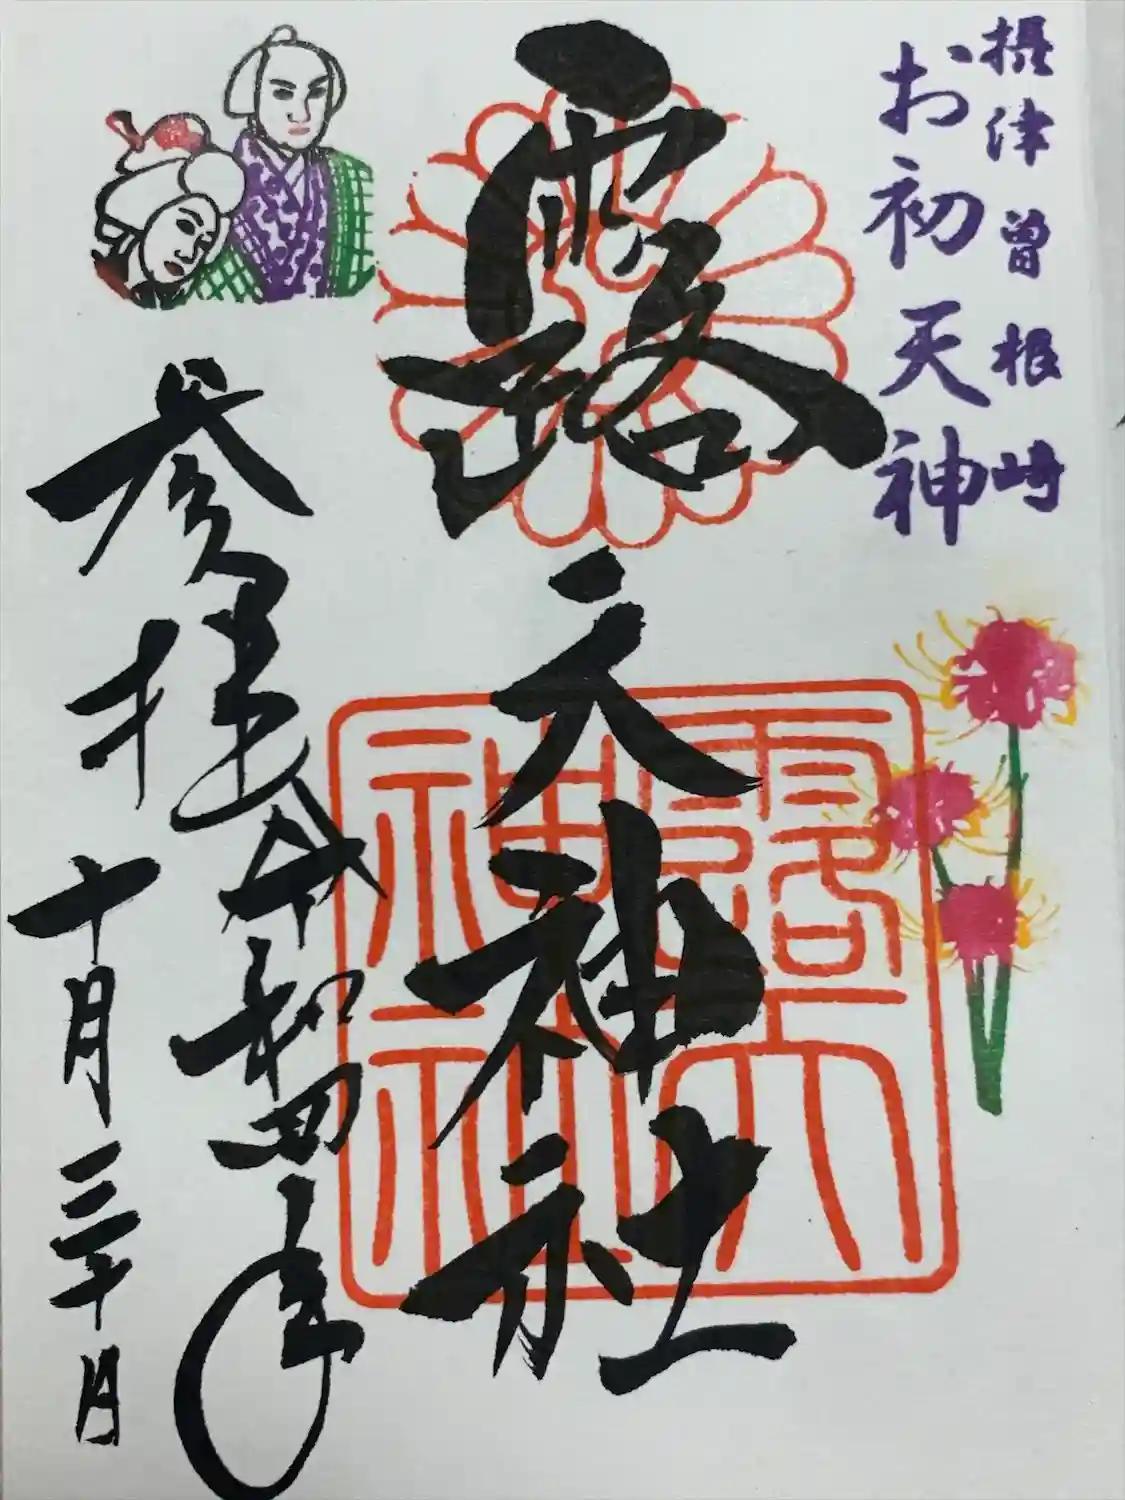 摂津曽根崎
お初天神
露天神社
露天
神社
参拝
令和四年
十月三十日